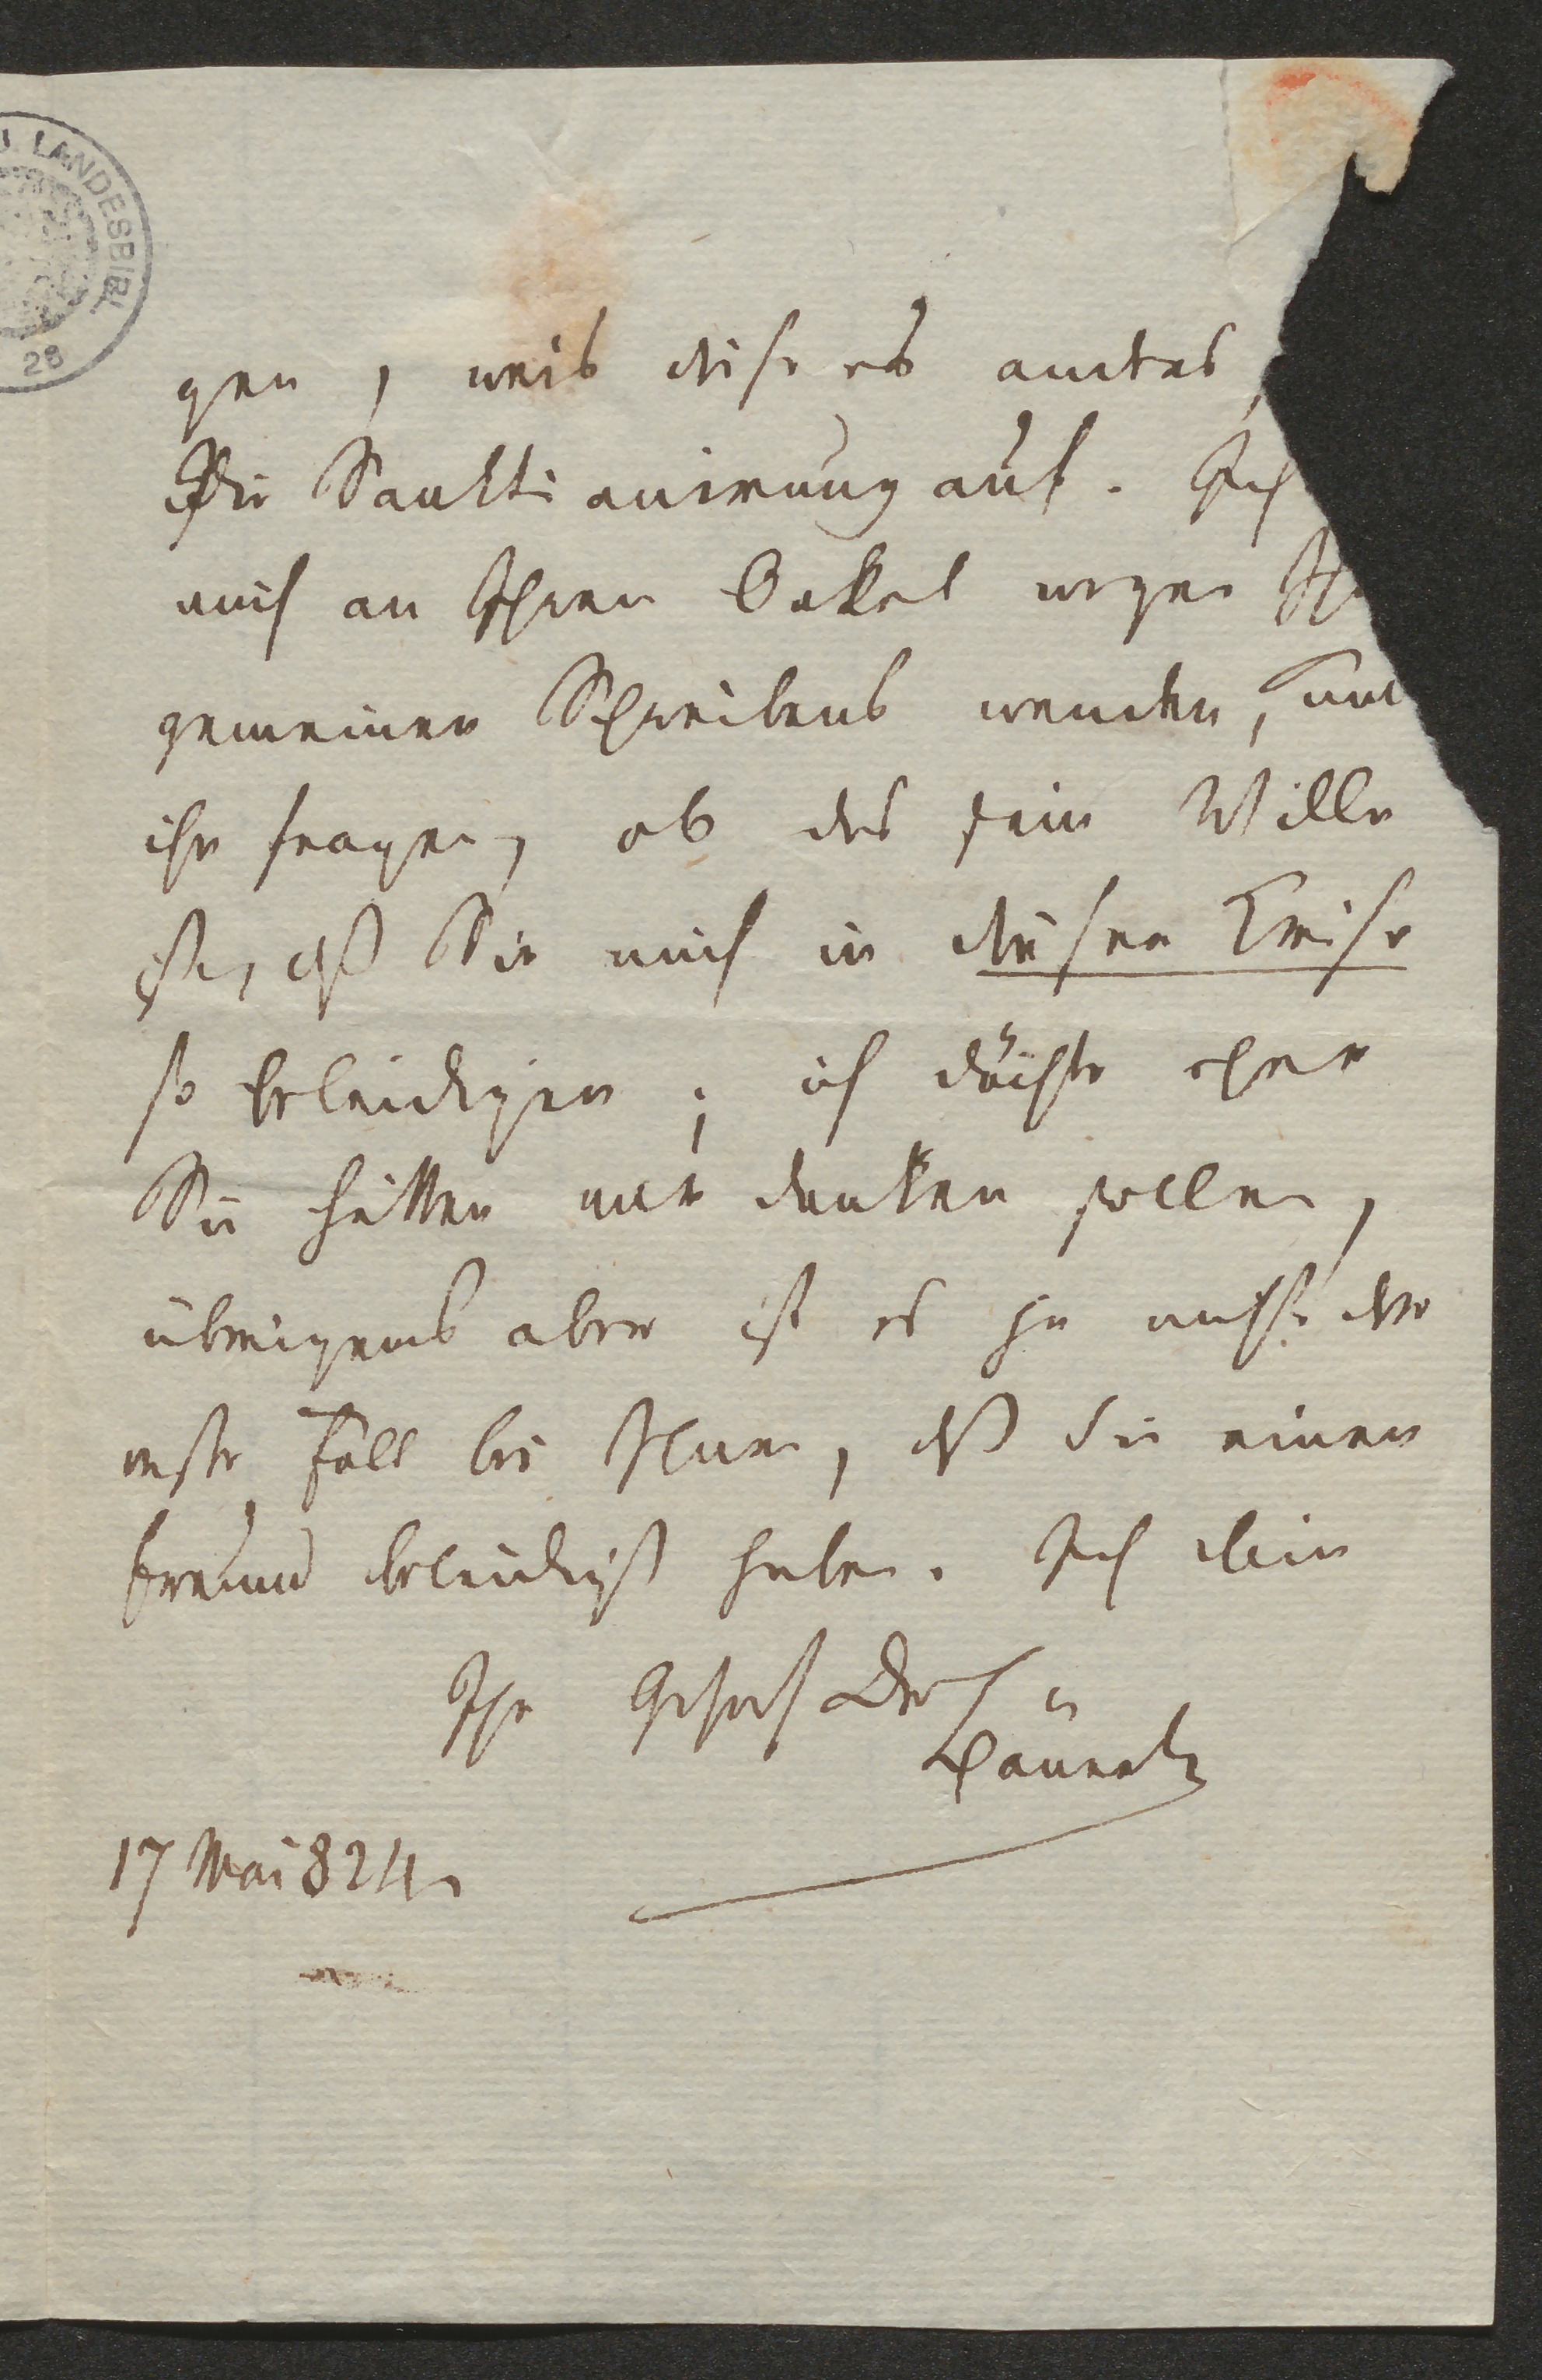 U. LANDESBIBL
28
gen, weis diese es anders,
Die Sanktionirung auf. Ich
mich an Ihren Onkel wegen Ih
gemeinen Schreibens wenden, und
ihn fragen, ob das sein Wille
ist, daß Sie mich in dieser Krise
so beleidigen; ich dächte eher
Sie hätten mir danken sollen,
übrigens aber ist es ja nicht der
erste Fall bei Ihnen, daß Sie einen
Freund beleidigt haben. Ich bin
Ihr
Bäuerle
17 Mai 824.